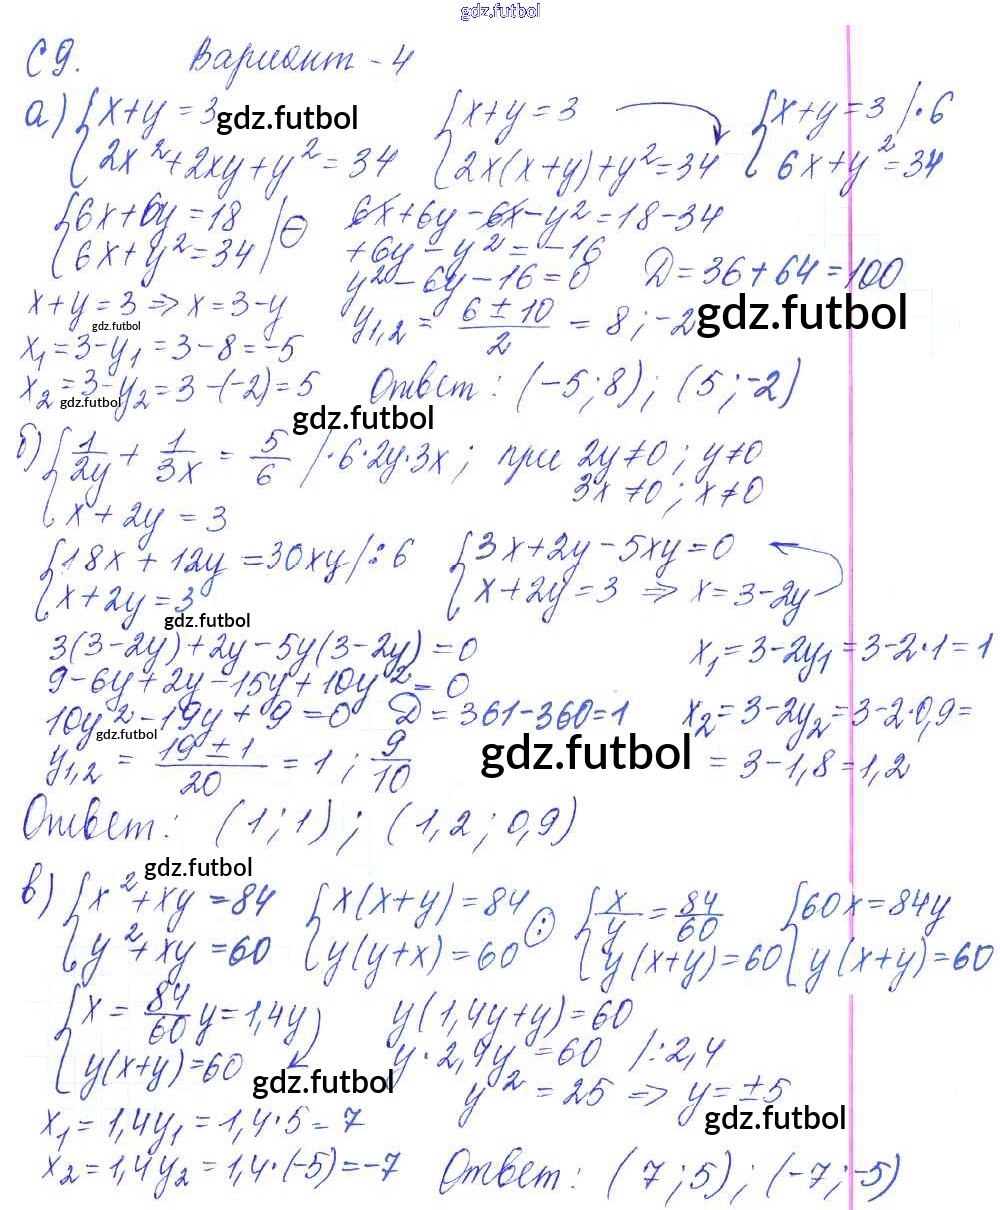 gdz.futbol
С 9. Вариант - 4
а) { x+y = 3 gdz.futbol { x+y = 3 { x+y = 3 /·6
{ 2x²+2xy+y² = 34 { 2x(x+y)+y² = 34 { 6x+y² = 34
{ 6x+6y = 18 / ⊖ 6x+6y-6x-y² = 18-34
{ 6x+y² = 34 / +6y-y² = -16
y²-6y-16 = 0 Д = 36+64 = 100
x+y = 3 ⇒ x = 3-y y₁,₂ = (6 ± 10)/2 = 8 ; -2 gdz.futbol
gdz.futbol
x₁ = 3-y₁ = 3-8 = -5
x₂ = 3-y₂ = 3-(-2) = 5 Ответ: (-5;8); (5;-2)
gdz.futbol
gdz.futbol
б) { 1/2y + 1/3x = 5/6 /·6·2y·3x ; при 2y≠0 ; y≠0
3x ≠0 ; x≠0
{ x+2y = 3
{ 18x + 12y = 30xy /:6 { 3x+2y-5xy = 0
{ x+2y = 3 { x+2y = 3 ⇒ x = 3-2y
gdz.futbol
3(3-2y)+2y-5y(3-2y) = 0 x₁ = 3-2y₁ = 3-2·1 = 1
9-6y+2y-15y+10y² = 0
10y²-19y+9 = 0 Д = 361-360 = 1 x₂ = 3-2y₂ = 3-2·0,9 =
gdz.futbol
y₁,₂ = (19 ± 1)/20 = 1 ; 9/10 gdz.futbol = 3-1,8 = 1,2
Ответ: (1;1); (1,2;0,9)
gdz.futbol
в) { x²+xy = 84 { x(x+y) = 84 { x/y = 84/60 { 60x = 84y
{ y²+xy = 60 { y(y+x) = 60 (:) { y(x+y) = 60 { y(x+y) = 60
{ x = 84/60 y = 1,4y y(1,4y+y) = 60
{ y(x+y) = 60 y·2,4y = 60 /:2,4
gdz.futbol y² = 25 ⇒ y = ±5
gdz.futbol
x₁ = 1,4y₁ = 1,4·5 = 7
x₂ = 1,4y₂ = 1,4·(-5) = -7 Ответ: (7;5); (-7;-5)